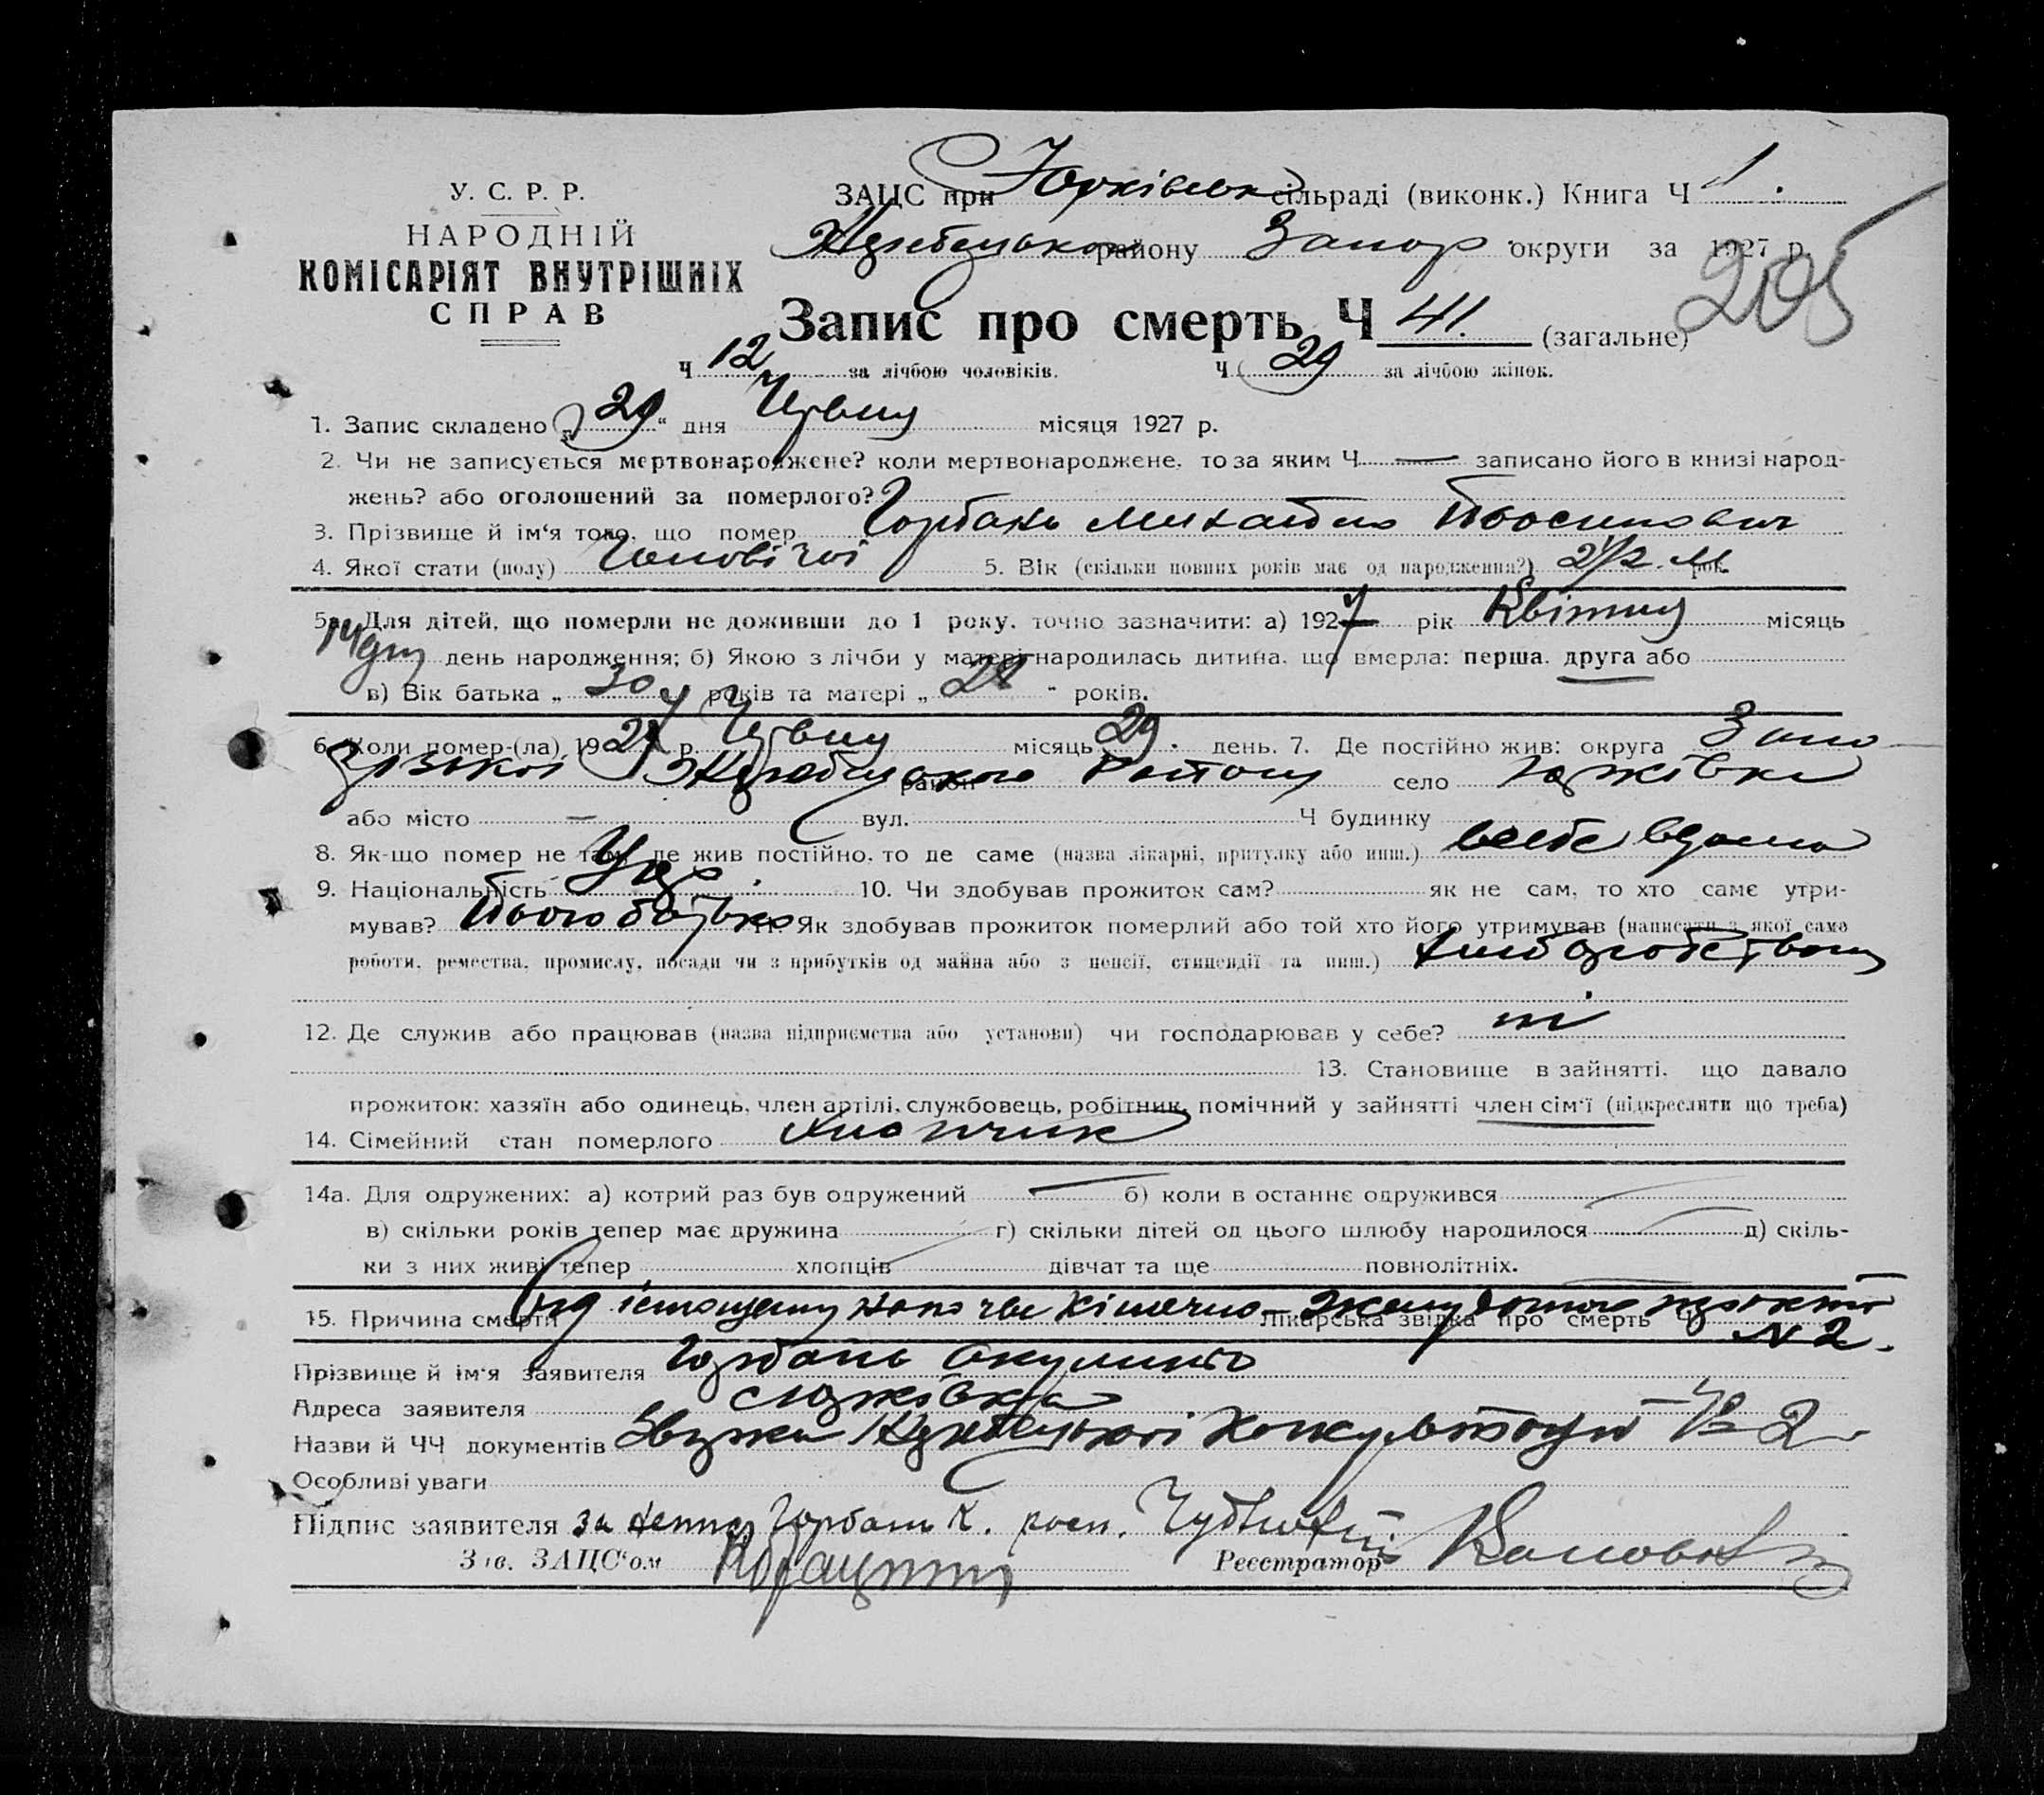 У. С. Р. Р.
НАРОДНІЙ
КОМІСАРІЯТ ВНУТРІШНІХ
СПРАВ
ЗАЦС при Юрківськ сільраді (виконк.) Книга Ч 1.
району Запор округи за 1927 р.
205
Запис про смерть Ч 41. (загальне)
Ч 12 за лічбою чоловіків. Ч 29 за лічбою жінок.
1. Запис складено „29“ дня Червня місяця 1927 р.
2. Чи не записується мертвонароджене? коли мертвонароджене, то за яким Ч — записано його в книзі народ-
жень? або оголошений за померлого?
3. Прізвище й ім‘я того, що помер Горбань Михайло
4. Якої стати (полу) Чоловічої 5. Вік (скільки повних років має од народження?) 2 1/2 м рок
5а. Для дітей, що померли не доживши до 1 року, точно зазначити: а) 1927 рік Квітня місяць
14 дня день народження; б) Якою з лічби у матері народилась дитина, що вмерла: перша, друга або
в) Вік батька „30“ років та матері „28“ років.
6. Коли помер-(ла) 1927 р. Червня місяць 29. день. 7. Де постійно жив: округа Запо-
різької район Району село Юрківка
або місто — вул. Ч будинку
8. Як-що помер не там, де жив постійно, то де саме (назва лікарні, притулку або инш.) себе вдома
9. Національність Укр. 10. Чи здобував прожиток сам? як не сам, то хто саме утри-
мував? Його батько 11. Як здобував прожиток померлий або той хто його утримував (написати з якої само
роботи, ремества, промислу, посади чи з прибутків од майна або з пенсії, стипендії та инш.) хліборобством
12. Де служив або працював (назва підприємства або установи) чи господарював у себе? ні
13. Становище в зайнятті, що давало
прожиток: хазяїн або одинець, член артілі, службовець, робітник, помічний у зайнятті член сім‘ї (підкреслити що треба)
14. Сімейний стан померлого Хлопчик
14а. Для одружених: а) котрий раз був одружений — б) коли в останнє одружився
в) скільки років тепер має дружина г) скільки дітей од цього шлюбу народилося д) скіль-
ки з них живі тепер хлопців дівчат та ще повнолітніх.
15. Причина смерти Од Лікарська звідка про смерть Ч
N 2.
Прізвище й ім‘я заявителя Горбань
Адреса заявителя с Юрківка
Назви й ЧЧ документів № 2
Особливі уваги
Підпис заявителя за Горбань К. росп.
Зав. ЗАЦС‘ом Реєстратор